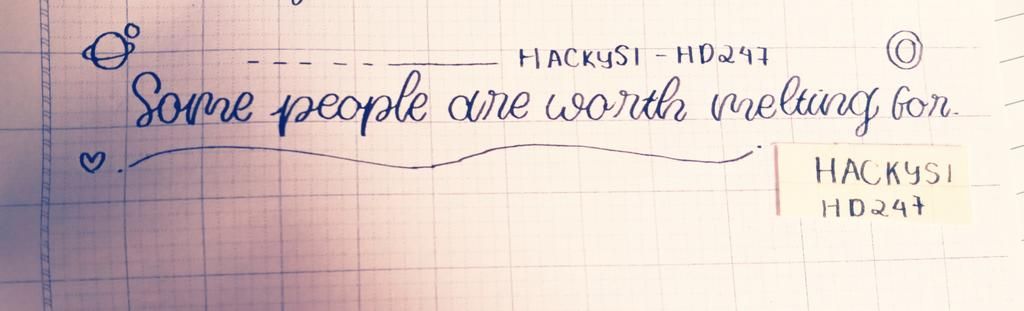 HACKYSI - HD247
Some people are worth melting for.
HACKYSI
HD247